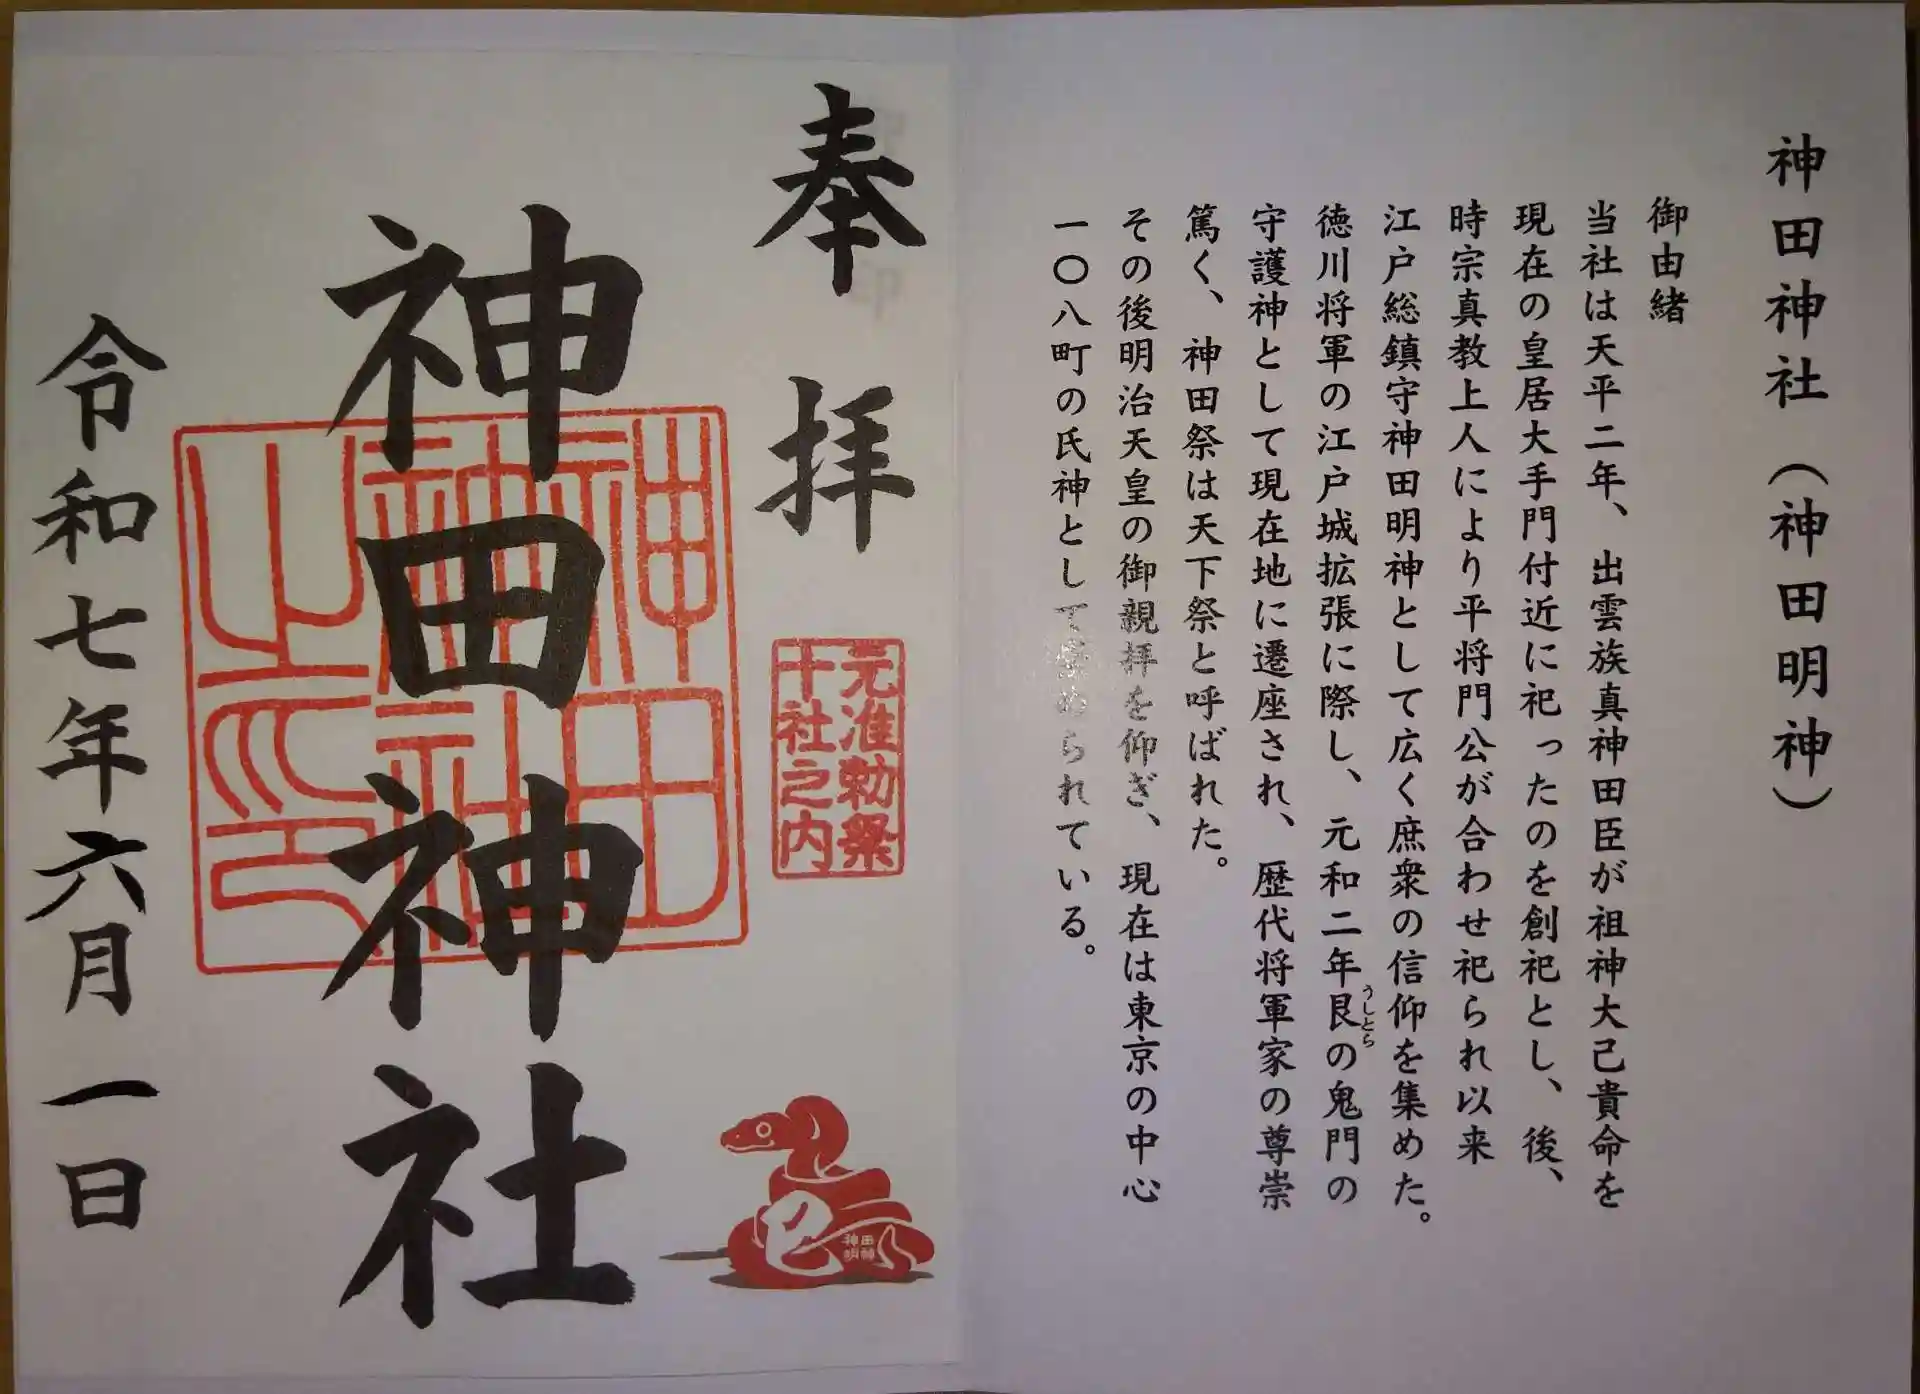 神田神社（神田明神）
御由緒
当社は天平二年、出雲族真神田臣が祖神大己貴命を
現在の皇居大手門付近に祀ったのを創祀とし、後、
時宗真教上人により平将門公が合わせ祀られ以来
江戸総鎮守神田明神として広く庶衆の信仰を集めた。
徳川将軍の江戸城拡張に際し、元和二年艮の鬼門の
うしとら
守護神として現在地に遷座され、歴代将軍家の尊崇
篤く、神田祭は天下祭と呼ばれた。
その後明治天皇の御親拝を仰ぎ、現在は東京の中心
一〇八町の氏神として崇められている。
奉拝
元准勅祭
十社之内
神田神社
神田
神社
之印
令和七年六月一日
巳
田神
神明